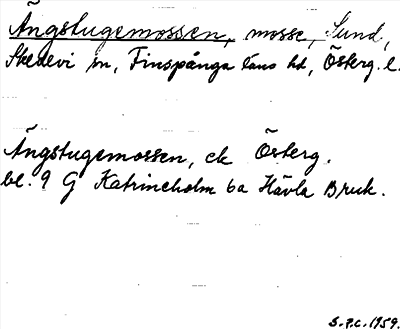 Ängstugemossen, mosse, Sund,
Skedevi sn, Finspånga läns hd, Österg. l.
Ängstugemossen, ek Österg.
bl. 9 G Katrineholm 6a Hävla Bruk.
S.F.C. 1959.